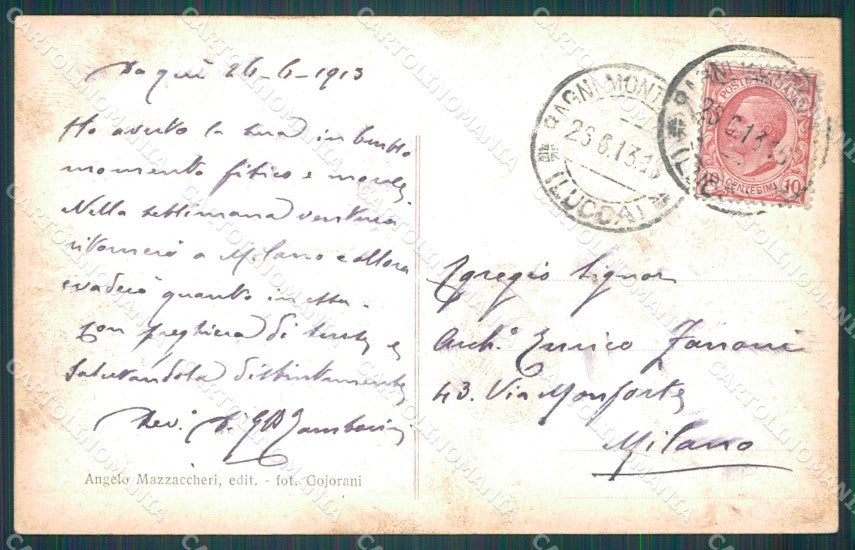 Da qui 26-6-1913
Ho avuto la sua in
momento fisico e
Nella settimana ventura
ritornerò a Milano e allora
evaderò quanto in essa.
Con preghiera di e
salutandola distintamente
Dev.
Angelo Mazzaccheri, edit. - fot. Cojorani
BAGNI MONT
26.6.13.1
(LUCCA)
BAGNI
6.13.1
POSTE ITALIANE
CENTESIMI 10
Egregio Signor
Arch.º Enrico Zanoni
43. Via Monforte
Milano
CARTOLINOMANIA